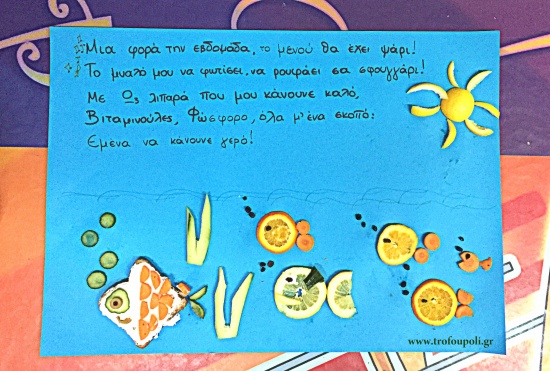 Μια φορά την εβδομάδα, το μενού θα έχει ψάρι!
Το μυαλό μου να φωτίσει, να ρουφάει σα σφουγγάρι!
Με Ω3 λιπαρά που μου κάνουνε καλό,
Βιταμινούλες, Φώσφορο, όλα μ' ένα σκοπό:
Εμένα να κάνουνε γερό!
www.trofoupoli.gr